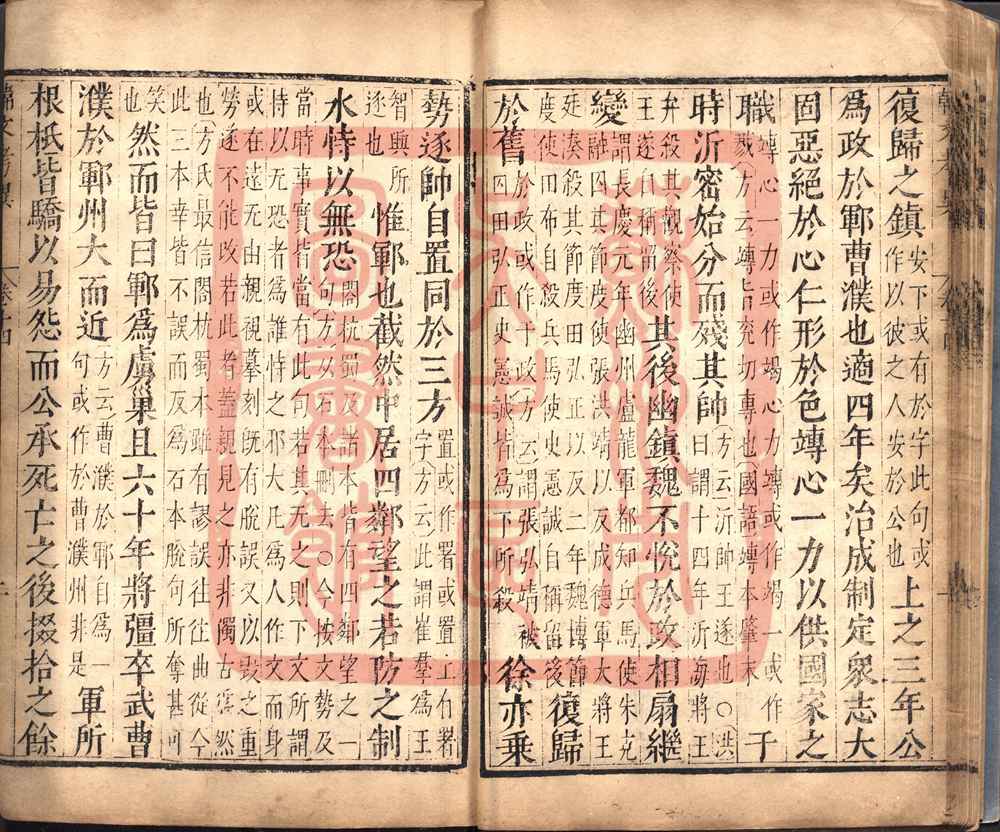 復歸之鎮安下或有於字此句或作以彼之人安於公也上之三年公
為政於鄆曹濮也適四年矣治成制定衆志大
固惡絕於心仁形於色竱心一力以供國家之
職竱心一力或作竭心力竱或作竭一或作戮方云竱旨兖切專也國語竱本肇末子
時沂密始分而殘其帥方云沂帥王遂也〇洪曰謂十四年沂海將王
弁殺其觀察使王遂自稱留後其後幽鎮魏不悅於政相扇繼
變謂長慶元年幽州盧龍軍都知兵馬使朱克融囚其節度使張洪靖以及成德軍大將王
廷湊殺其節度田弘正以及二年魏博節度使田布自殺兵馬使史憲誠自稱留後復歸
於舊於政或作于政方云謂張弘靖被囚田弘正史憲誠皆為下所殺徐亦乘
勢逐帥自置同於三方置或作署或置上有署字方云此謂崔羣為王
智興所逐也惟鄆也截然中居四鄰望之若防之制
水恃以無恐閣杭蜀及諸本皆有四鄰望之一句方从石本刪去〇今按文勢及
當時事實皆當有此句若其無之則下文所謂恃以無恐者為誰恃之邪大凡為人作文而身
或在遠无由親視摹刻既有脫誤又以毀之重勞遂不能改若此者蓋親見之亦非獨古為然
也方氏最信閣杭蜀本雖有謬誤往往曲從今此三本幸皆不誤而反為石本脫句所奪甚可
笑也然而皆曰鄆為虜巢且六十年將彊卒武曹
濮於鄆州大而近方云曹濮於鄆自為一句或作於曹濮州非是軍所
根柢皆驕以易怨而公承死亡之後掇拾之餘